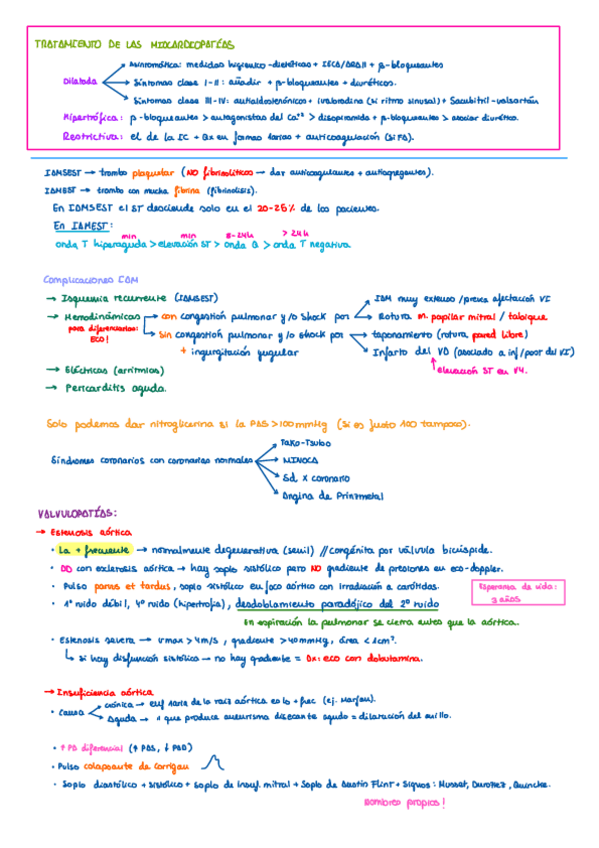 TRATAMIENTO DE LAS MIOCARDIOPATÍAS
Dilatada
Asintomática: medidas higiénico-dietéticas + IECA/ARAII + β-bloqueantes
Síntomas clase I-II: añadir + β-bloqueantes + diuréticos.
Síntomas clase III-IV: antialdosterónicos + ivabradina (si ritmo sinusal) + Sacubitril-valsartán
Hipertrófica: β-bloqueantes > antagonistas del Ca+2 > disopiramida + β-bloqueantes > asociar diurético.
Restrictiva: el de la IC + Qx en formas tardías + anticoagulación (si FA).
IAMSEST → trombo plaquetar (NO fibrinolíticos → dar anticoagulantes + antiagregantes).
IAMEST → trombo con mucha fibrina (fibrinolisis).
En IAMSEST el ST desciende solo en el 20-25% de los pacientes.
En IAMEST:
min min 8-24h > 24h
onda T hiperaguda > elevación ST > onda Q > onda T negativa
Complicaciones IAM
→ Isquemia recurrente (IAMSEST)
→ Hemodinámicas
para diferenciarlas: ECO!
con congestión pulmonar y/o shock por
IAM muy extenso / previa afectación VI
Rotura m. papilar mitral / tabique
sin congestión pulmonar y/o shock por
+ ingurgitación yugular
taponamiento (rotura pared libre)
Infarto del VD (asociado a inf/post del VI)
elevación ST en V4.
→ Eléctricas (arritmias)
→ Pericarditis aguda.
Solo podemos dar nitroglicerina si la PAS > 100 mmHg (si es justo 100 tampoco).
Síndromes coronarios con coronarias normales
Tako-Tsubo
MINOCA
Sd. X coronario
Angina de Prinzmetal
VALVULOPATÍAS:
→ Estenosis aórtica
• La + frecuente → normalmente degenerativa (senil) // congénita por válvula bicúspide.
• DD con esclerosis aórtica → hay soplo sistólico pero NO gradiente de presiones en eco-doppler.
• Pulso parvus et tardus, soplo sistólico en foco aórtico con irradiación a carótidas.
Esperanza de vida:
3 años
• 1º ruido débil, 4º ruido (hipertrofia), desdoblamiento paradójico del 2º ruido
En espiración la pulmonar se cierra antes que la aórtica.
• Estenosis severa → vmax > 4m/s, gradiente > 40mmHg, área < 1cm².
si hay disfunción sistólica → no hay gradiente = Dx: eco con dobutamina.
→ Insuficiencia aórtica
• Causa
crónica → enf de la raíz aórtica es lo + frec (ej. Marfan).
Aguda → que produce aneurisma disecante agudo = dilatación del anillo.
• ↑ PA diferencial (↑ PAS, ↓ PAD)
• Pulso colapsante de Corrigan
• Soplo diastólico + sistólico + soplo de insuf. mitral + Soplo de Austin Flint + Signos: Musset, Duroziez, Quincke.
nombres propios!